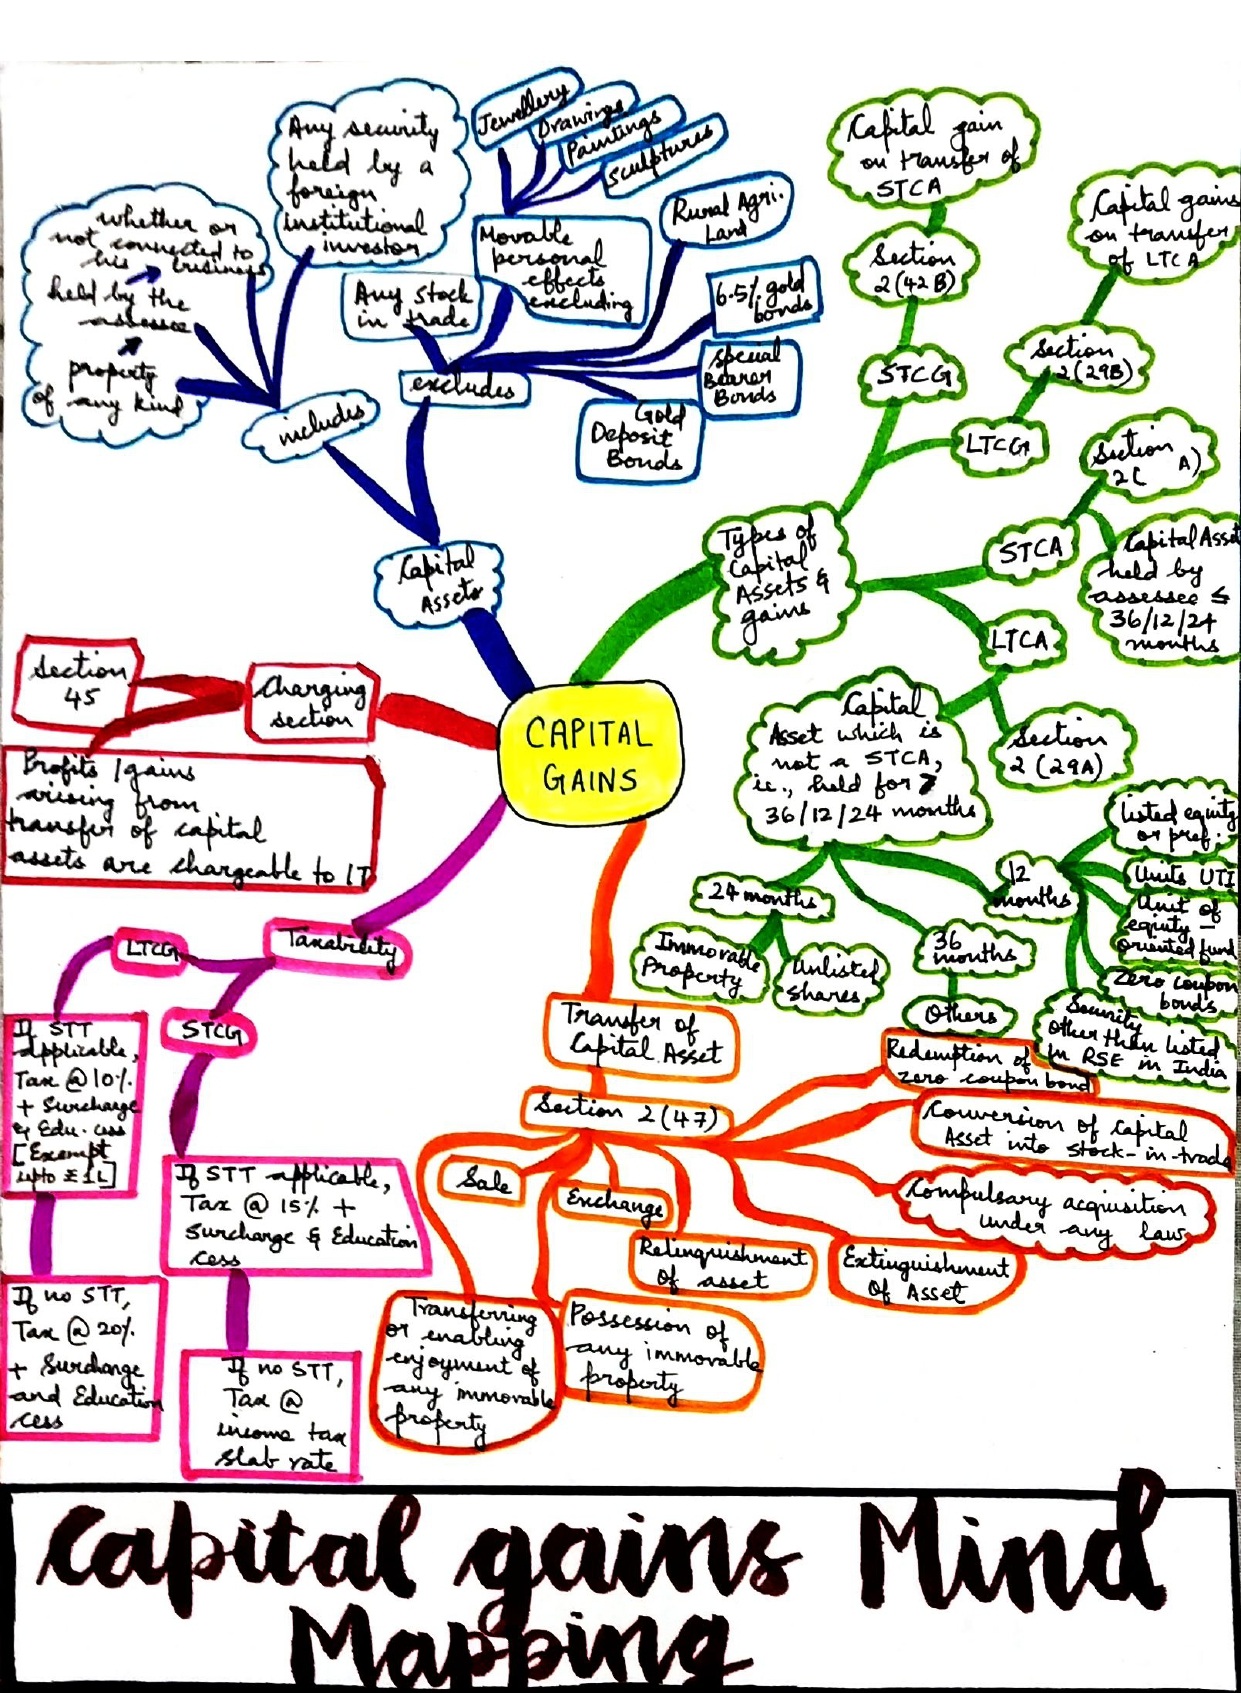 Any security
held by a
foreign
institutional
investor
Jewellery
Drawings
Paintings
Sculptures
Movable
personal
effects
excluding
Rural Agri.
Land
6.5% gold
bonds
special
Bearer
Bonds
Gold
Deposit
Bonds
Any stock
in trade
excludes
whether or
not connected to
his business
held by the
assessee
property
of any kind
includes
Capital
Assets
Capital gain
on transfer of
STCA
Section
2(42B)
STCG
Capital gains
on transfer
of LTCA
Section
2(29B)
LTCG
Types of
Capital
Assets &
gains
Section
2( A)
STCA
Capital Asset
held by
assessee ≤
36/12/24
months
LTCA
Section
2(29A)
Capital
Asset which is
not a STCA,
ie., held for >
36/12/24 months
24 months
Immovable
Property
Unlisted
shares
36
months
Others
12
months
Listed equity
or pref.
Units UTI
Unit of
equity -
oriented fund
Zero coupon
bonds
Security
other than listed
in RSE in India
CAPITAL
GAINS
Charging
section
Section
45
Profits/gains
arising from
transfer of capital
assets are chargeable to IT
Taxability
LTCG
If STT
applicable,
Tax @ 10%
+ Surcharge
& Edu. cess
[Exempt
upto ₹1L]
If no STT,
Tax @ 20%
+ Surcharge
and Education
cess
STCG
If STT applicable,
Tax @ 15% +
Surcharge & Education
cess
If no STT,
Tax @
income tax
slab rate
Transfer of
Capital Asset
Section 2(47)
Sale
Exchange
Relinquishment
of asset
Extinguishment
of Asset
Redemption of
zero coupon bond
Conversion of capital
Asset into stock-in-trade
Compulsory acquisition
under any law
Transferring
or enabling
enjoyment of
any immovable
property
Possession of
any immovable
property
Capital gains Mind
Mapping